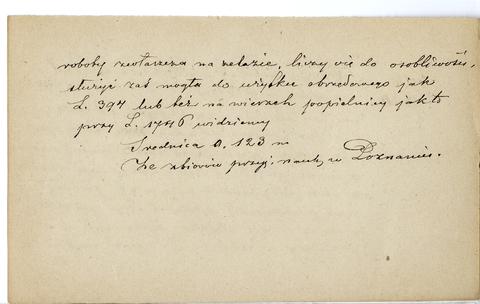 roboty zwłaszcza na żelazie, liczy się do osobliwości,
służyć zaś mogła do użytku obrzędowego jak
L. 397 lub też na wierzch popielnicy jak to
przy L. 1746 widzimy
Średnica 0.123 m
Ze zbiorów przyj. nauk, w Poznaniu.